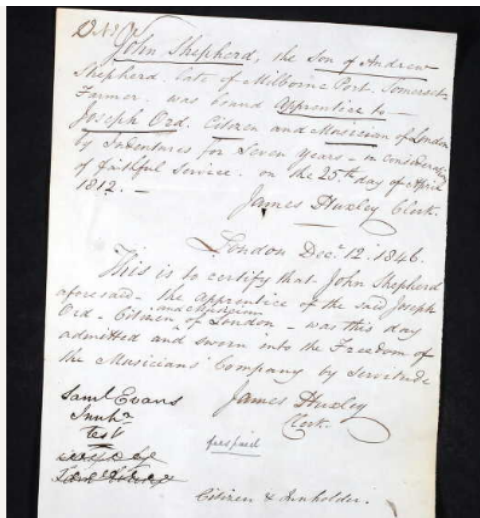 John Shepherd, the Son of Andrew
Shepherd. late of Milborne Port. Somerset
Farmer. was bound Apprentice to —
Joseph Ord. Citizen and Musician of London
by Indentures for Seven Years – in consideration
of faithful Service. on the 25th day of April
1812. —
James Huxley Clerk.
London Decr. 12. 1846.
This is to certify that John Shepherd
aforesaid – the apprentice of the said Joseph
Ord – Citizen and Musician of London – was this day
admitted and sworn into the Freedom of
the Musicians' Company by servitude
James Huxley
Clerk.
Saml Evans
Innhr
test
Citizen & Innholder.